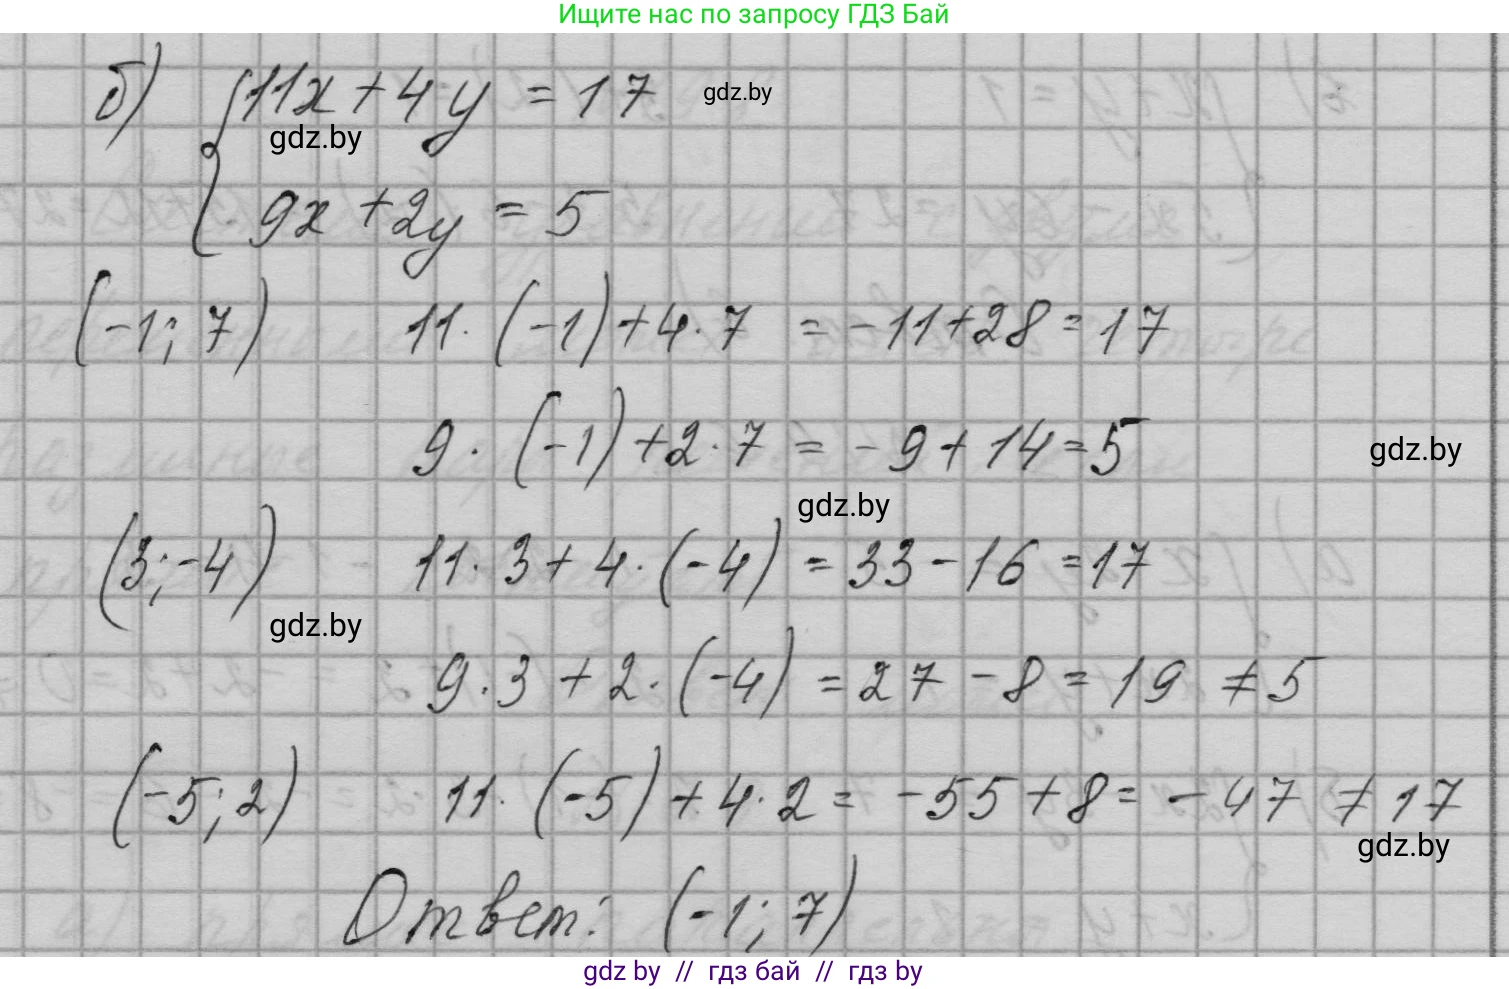 Ищите нас по запросу ГДЗ Бай
б) 11x + 4y = 17 gdz.by
gdz.by
9x + 2y = 5
(-1; 7) 11 · (-1) + 4 · 7 = -11 + 28 = 17
9 · (-1) + 2 · 7 = -9 + 14 = 5 gdz.by
gdz.by
(3; -4) 11 · 3 + 4 · (-4) = 33 - 16 = 17
gdz.by
9 · 3 + 2 · (-4) = 27 - 8 = 19 ≠ 5
(-5; 2) 11 · (-5) + 4 · 2 = -55 + 8 = -47 ≠ 17
gdz.by
Ответ: (-1; 7)
gdz by // гдз бай // гдз by